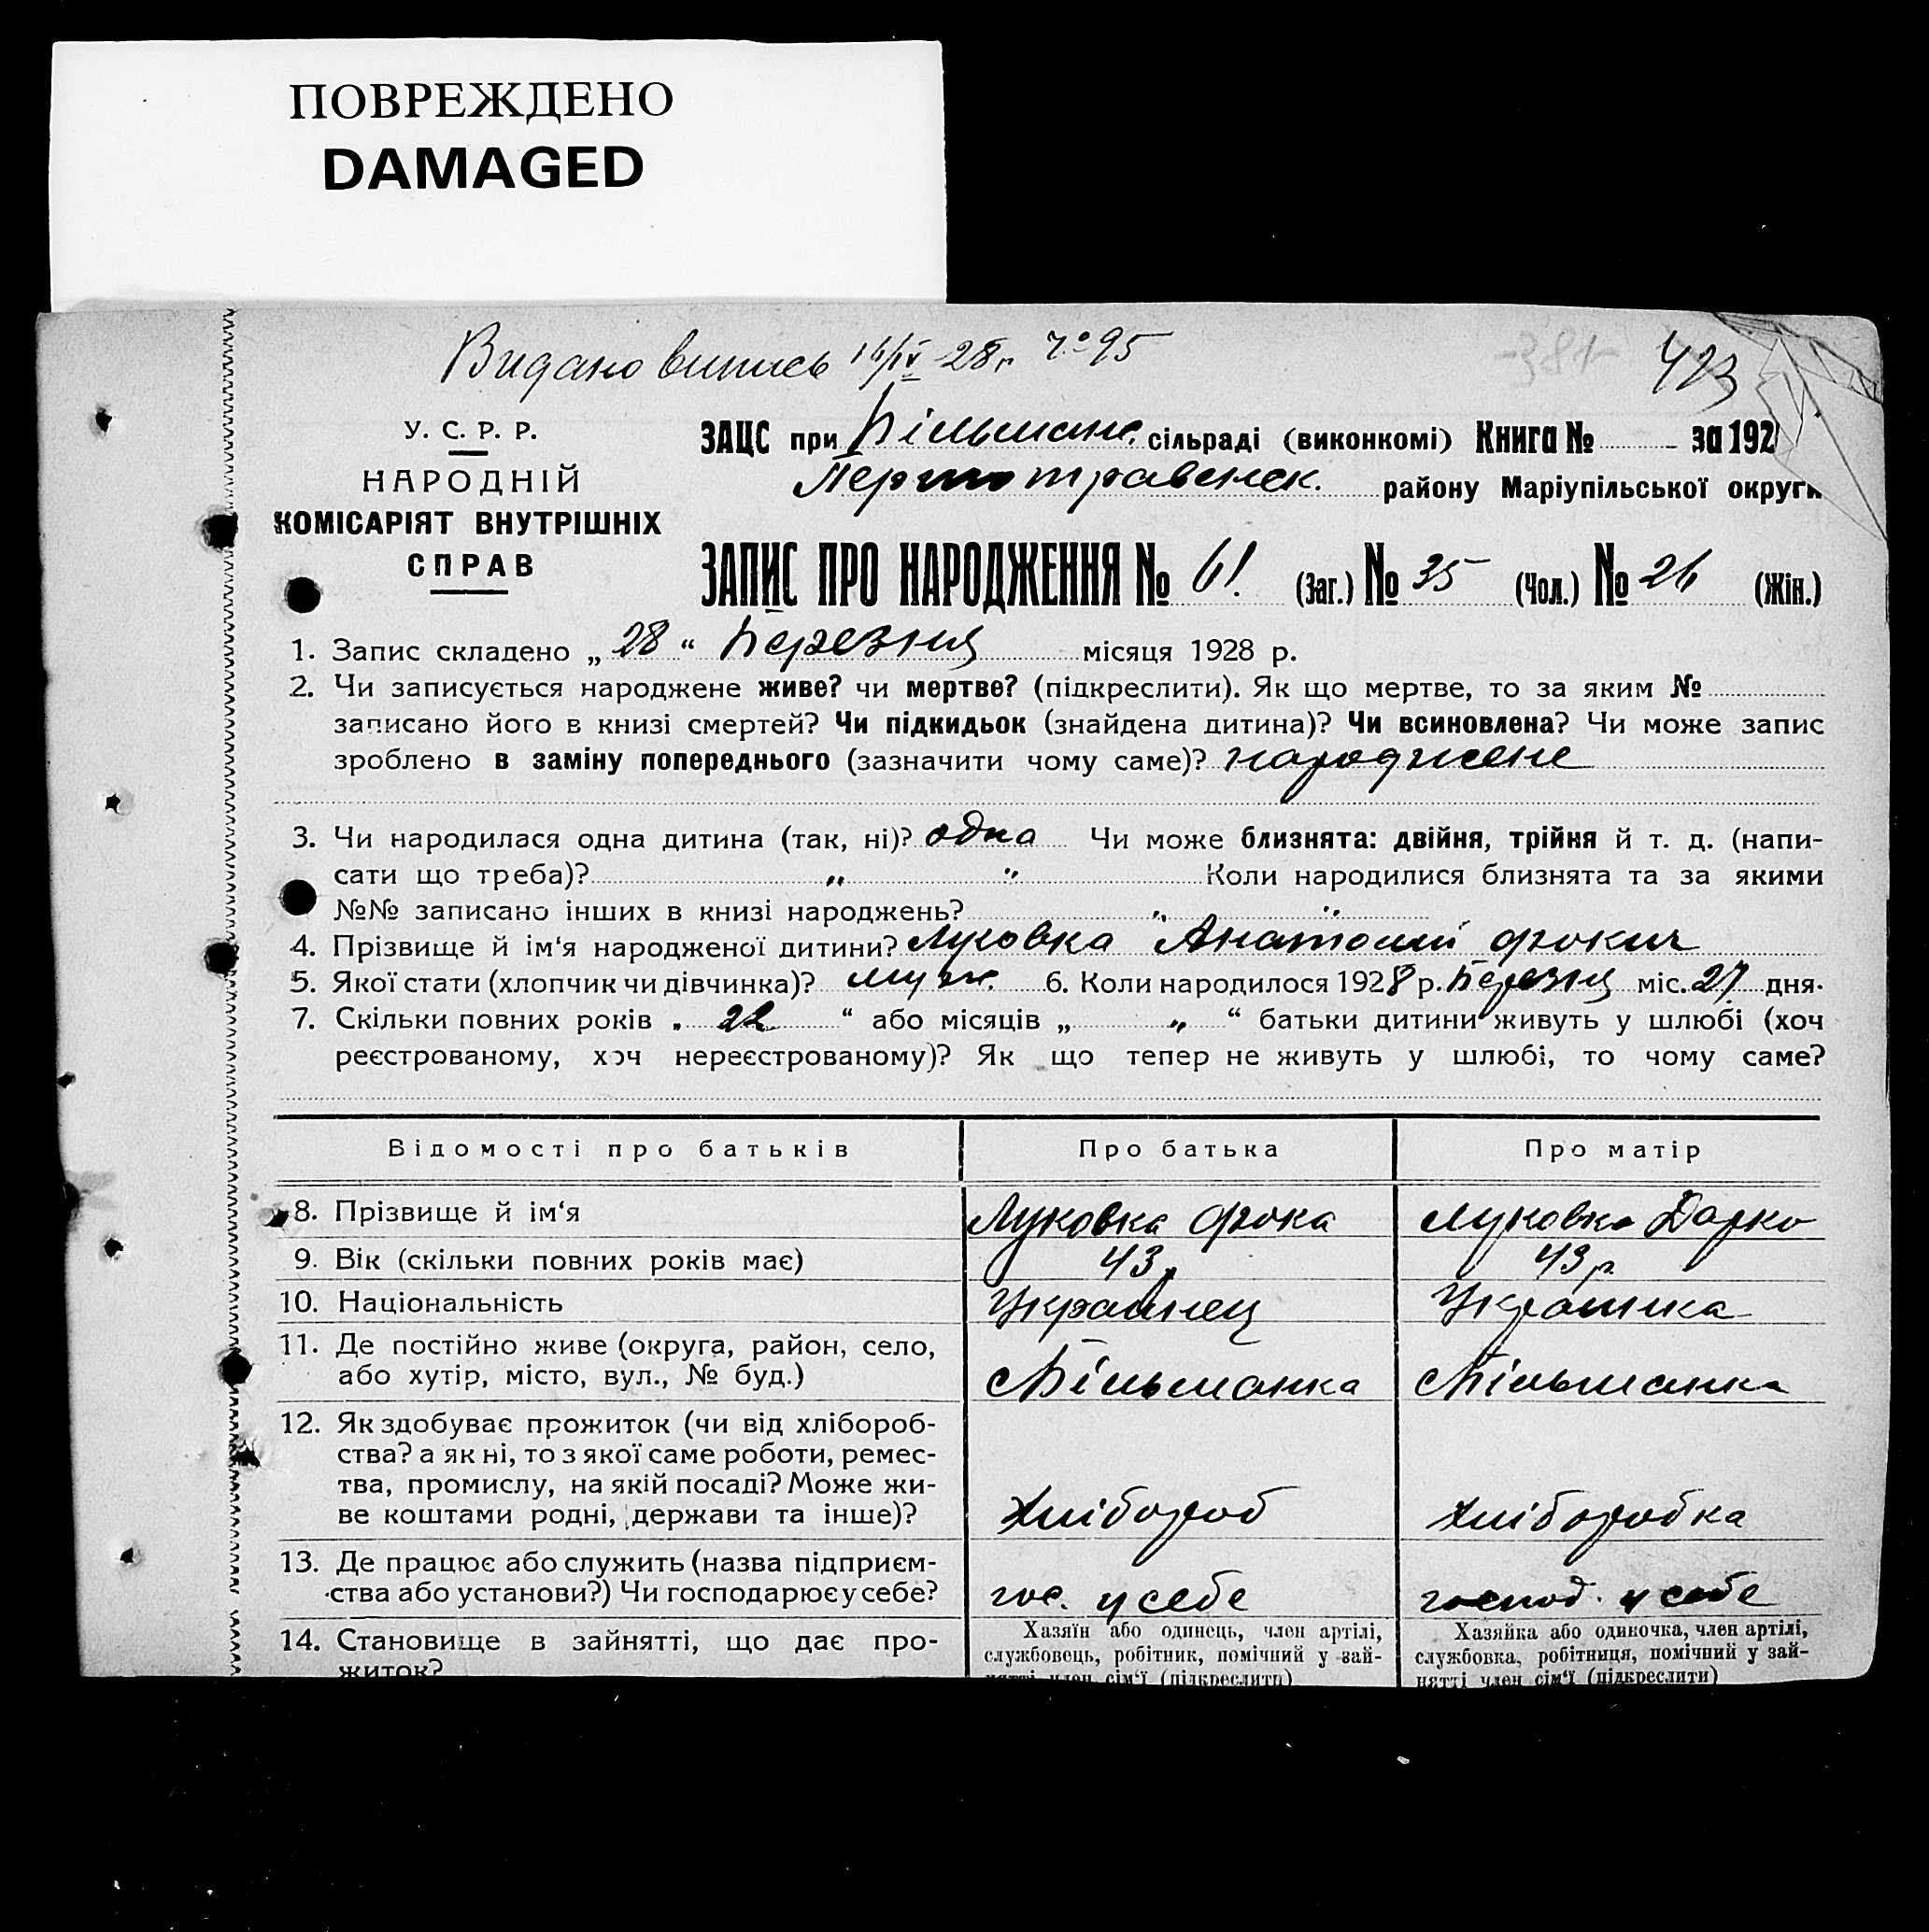 ПОВРЕЖДЕНО
DAMAGED
Видано випись 16/IV 28 г. № 95
423
У. С. Р. Р.
НАРОДНІЙ
КОМІСАРІЯТ ВНУТРІШНІХ
СПРАВ
ЗАЦС при Більманк. сільраді (виконкомі) Книга № за 192
Першотравенск. району Маріупільської округи
ЗАПИС ПРО НАРОДЖЕННЯ № 61 (Заг.) № 35 (Чол.) № 26 (Жін.)
1. Запис складено „ 28 “ Березня місяця 1928 р.
2. Чи записується народжене живе? чи мертве? (підкреслити). Як що мертве, то за яким №
записано його в книзі смертей? Чи підкидьок (знайдена дитина)? Чи всиновлена? Чи може запис
зроблено в заміну попереднього (зазначити чому саме)? народжене
3. Чи народилася одна дитина (так, ні)? одна Чи може близнята: двійня, трійня й т. д. (напи-
сати що треба)? „ „ Коли народилися близнята та за якими
№№ записано інших в книзі народжень? „ „
4. Прізвище й ім‘я народженої дитини? Луковка Анатолій Фокич
5. Якої стати (хлопчик чи дівчинка)? муж. 6. Коли народилося 1928 р. Березня міс. 27 дня.
7. Скільки повних років „ 22 “ або місяців „ „ “ батьки дитини живуть у шлюбі (хоч
реєстрованому, хоч нереєстрованому)? Як що тепер не живуть у шлюбі, то чому саме?
Відомості про батьків Про батька Про матір
8. Прізвище й ім‘я Луковка Фока Луковка Дарко
9. Вік (скільки повних років має) 43 р. 43 р.
10. Національність Українец Українка
11. Де постійно живе (округа, район, село,
або хутір, місто, вул., № буд.) с Більманка с Більманка
12. Як здобуває прожиток (чи від хлібороб-
ства? а як ні, то з якої саме роботи, ремес-
тва, промислу, на якій посаді? Може жи-
ве коштами родні, держави та інше)? Хлібороб Хліборобка
13. Де працює або служить (назва підприєм-
ства або установи?) Чи господарює у себе? гос. у себе господ. у себе
14. Становище в зайнятті, що дає про-
житок?
Хазяїн або одинець, член артілі,
службовець, робітник, помічний у зай-
нятті член сім‘ї (підкреслити)
Хазяйка або одиночка, член артілі,
службовка, робітниця, помічний у зай-
нятті член сім‘ї (підкреслити)